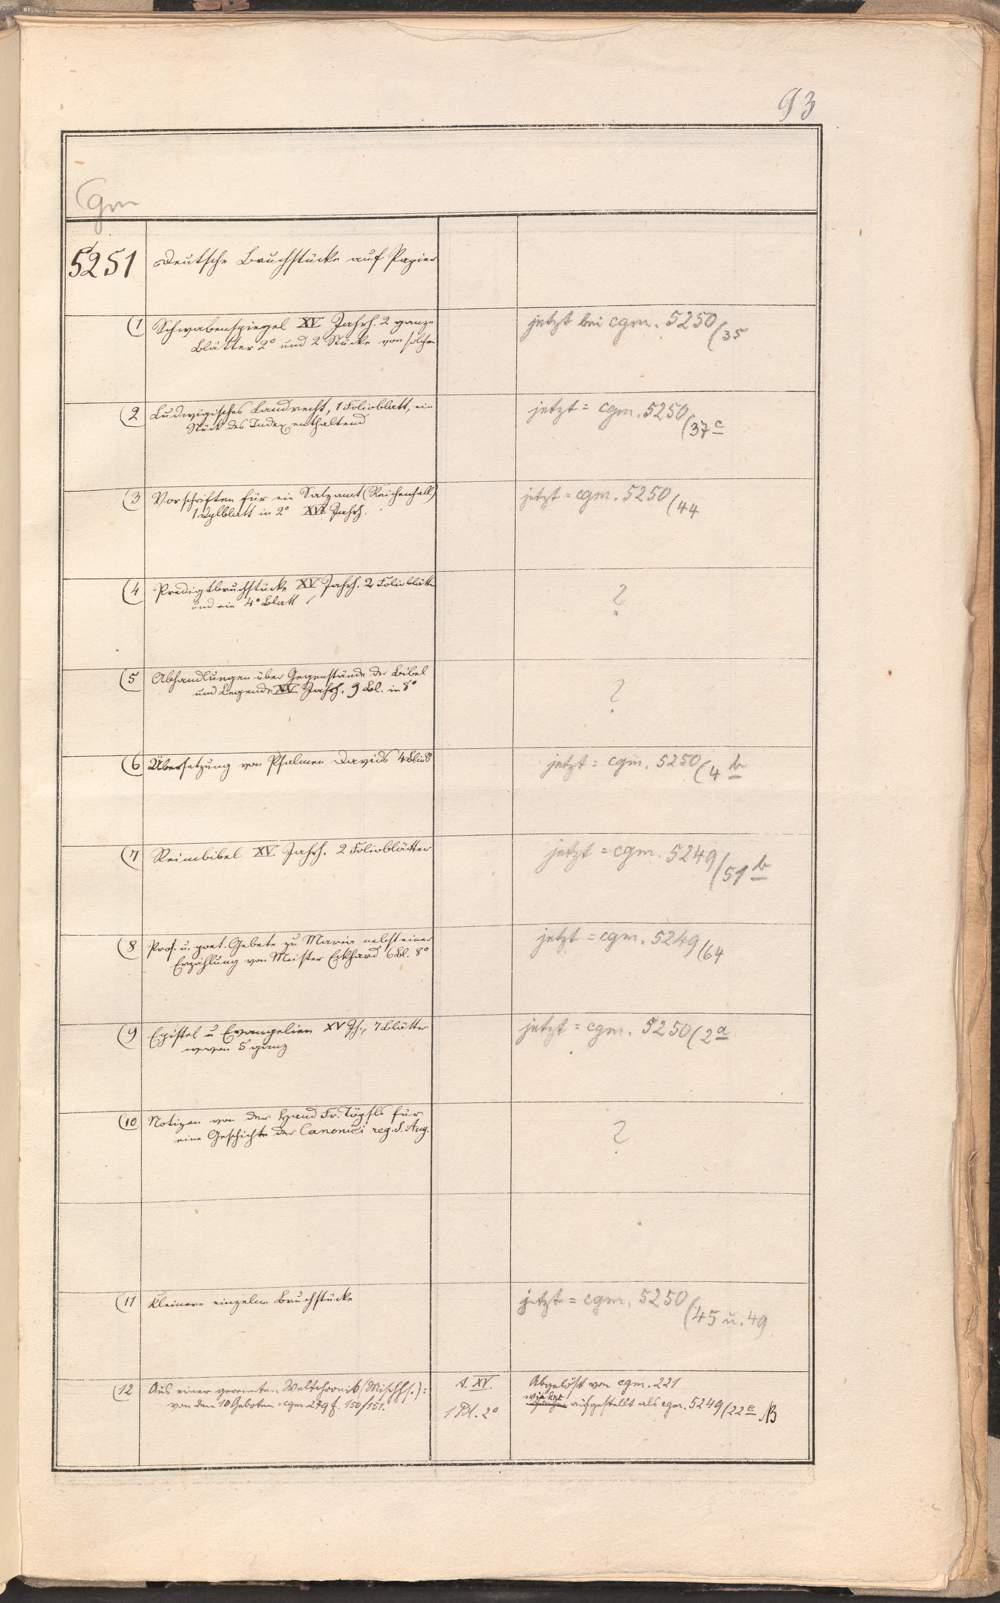 93
Cgm
5251 Deutsche Bruchstücke auf Papier
(1 Schwabenspiegel XV. Jahrh. 2 ganze
Blätter 2° und 2 Stücke von solchen
jetzt bei cgm. 5250
(35
(2 Ludwigisches Landrecht, 1 Folioblatt, ein
Stück des Index enthaltend
jetzt = cgm. 5250
(37c
(3 Vorschriften für ein Salzamt (Reichenhall)
in 2° XVI. Jahrh.
jetzt = cgm. 5250
(44
(4 Predigtbruchstücke XV. Jahrh. 2 Folioblätter
und ein 4° Blatt
?
(5 Abhandlungen über Gegenstände der Bibel
und Legende XV. Jahrh. 9 Bl. in 8°
?
(6 Übersetzung von Psalmen Davids
jetzt = cgm. 5250
(4 b
(7 Reimbibel XV. Jahrh. 2 Folioblätter
jetzt = cgm. 5249
/51 b
(8 Pros. u. poet. Gebete zu Maria nebst einer
Erzählung von Meister Eckhard 6 Bl. 8°
jetzt = cgm. 5249
/64
(9 Epistel u Evangelien XV Jh., 7 Blätter
wovon 5 ganz
jetzt = cgm. 5250
(2a
(10 Notizen von der Hand Fr. Töpsls für
eine Geschichte der Canonici reg. S. Aug.
?
(11 Kleinere einzelne Bruchstücke
jetzt = cgm. 5250
(45 u. 49
(12 Aus einer gereimten Weltchronik (Mischhs.):
von den 10 Geboten = cgm 279 f. 150/151.
s. XV.
1 Bl. 2°
Abgelöst von cgm. 221
aufgestellt als cgm. 5249/22e